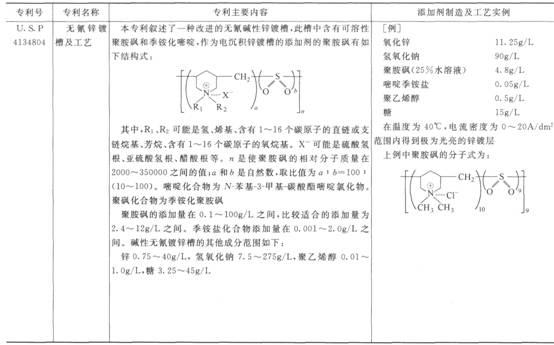 专利号
专利名称
专利主要内容
添加剂制造及工艺实例
U.S.P
4134804
无氰锌镀
槽及工艺
本专利叙述了一种改进的无氰碱性锌镀槽,此槽中含有可溶性
聚胺砜和季铵化嘧啶,作为电沉积锌镀槽的添加剂的聚胺砜有如
下结构式:
CH2
N+ X-
R1 R2
a
S
O O
b
n
其中,R1、R2 可能是氢、烯基、含有1~16个碳原子的直链或支
链烷基、芳烷、含有1~16个碳原子的氧烷基。X- 可能是硫酸氢
根、亚硫酸氢根、醋酸根等。n 是使聚胺砜的相对分子质量在
2000~350000之间的值;a 和 b 是自然数,取比值为 a:b=100:
(10~100)。嘧啶化合物为 N-苯基-3-甲基-碳酸酯嘧啶氯化物。
聚砜化合物为季铵化聚胺砜
聚胺砜的添加量在0.1~100g/L之间,比较适合的添加量为
2.4~12g/L之间。季铵盐化合物添加量在0.001~2.0g/L之
间。碱性无氰镀锌槽的其他成分范围如下:
锌0.75~40g/L,氢氧化钠7.5~275g/L,聚乙烯醇0.01~
1.0g/L,糖3.25~45g/L
[例]
氧化锌 11.25g/L
氢氧化钠 90g/L
聚胺砜(25%水溶液) 4.8g/L
嘧啶季铵盐 0.05g/L
聚乙烯醇 0.5g/L
糖 15g/L
在温度为40℃,电流密度为0~20A/dm2
范围内得到极为光亮的锌镀层
上例中聚胺砜的分子式为:
CH2
N+ Cl-
CH3 CH3
10
S
O O
9
9